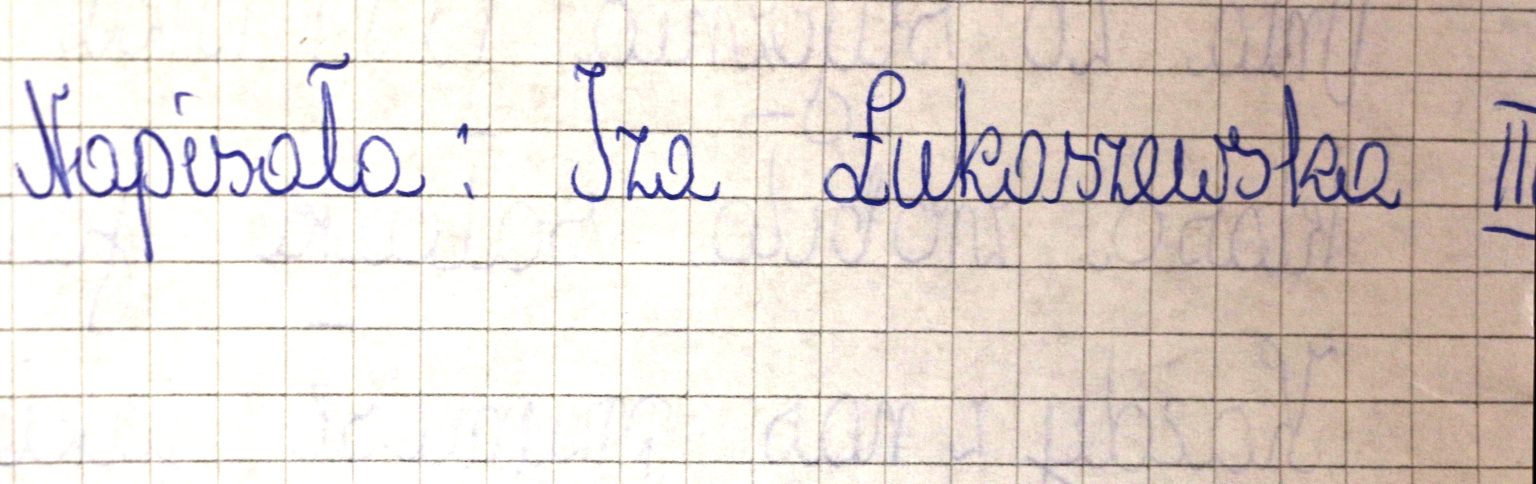 Napisała: Iza Łukaszewska II